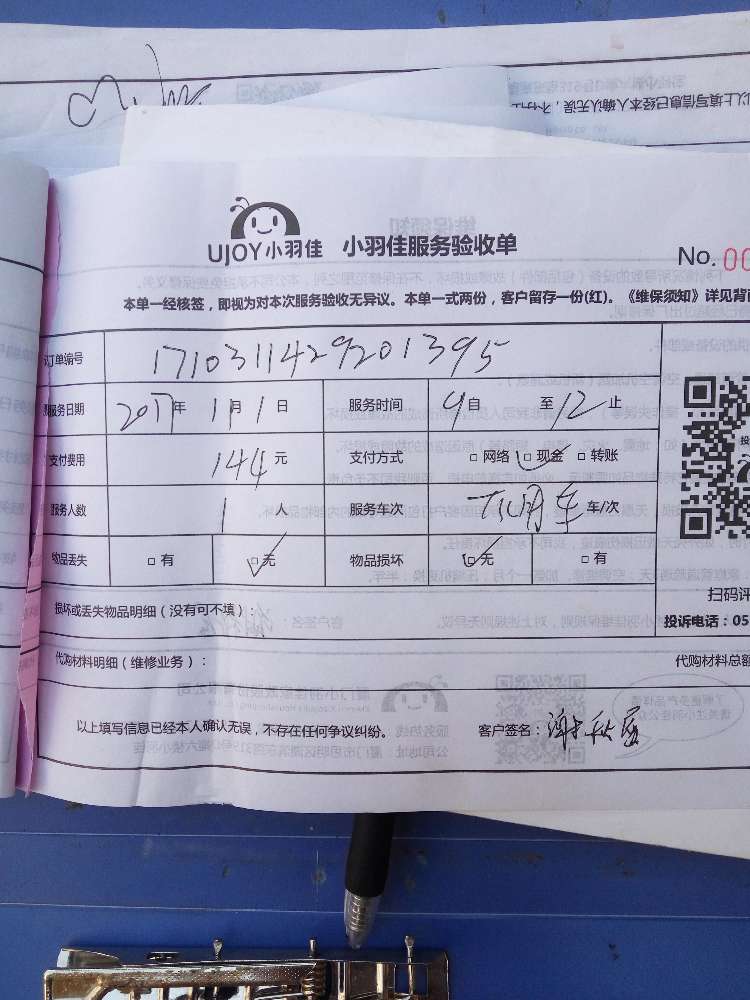 UJOY小羽佳 小羽佳服务验收单
No. 00
本单一经核签，即视为对本次服务验收无异议。本单一式两份，客户留存一份(红)。《维保须知》详见背面
订单编号 1710311429201395
服务日期 2017年 11月1日 服务时间 9自 至12止
支付费用 144元 支付方式 □网络 □现金 □转账
服务人数 1人 服务车次 不用车 车/次
物品丢失 □有 □无 物品损坏 □无 □有
扫码评
损坏或丢失物品明细（没有可不填）：
投诉电话：05
代购材料明细（维修业务）： 代购材料总额
以上填写信息已经本人确认无误，不存在任何争议纠纷。 客户签名：谢秋
以上填写信息已经本人确认无误，不存